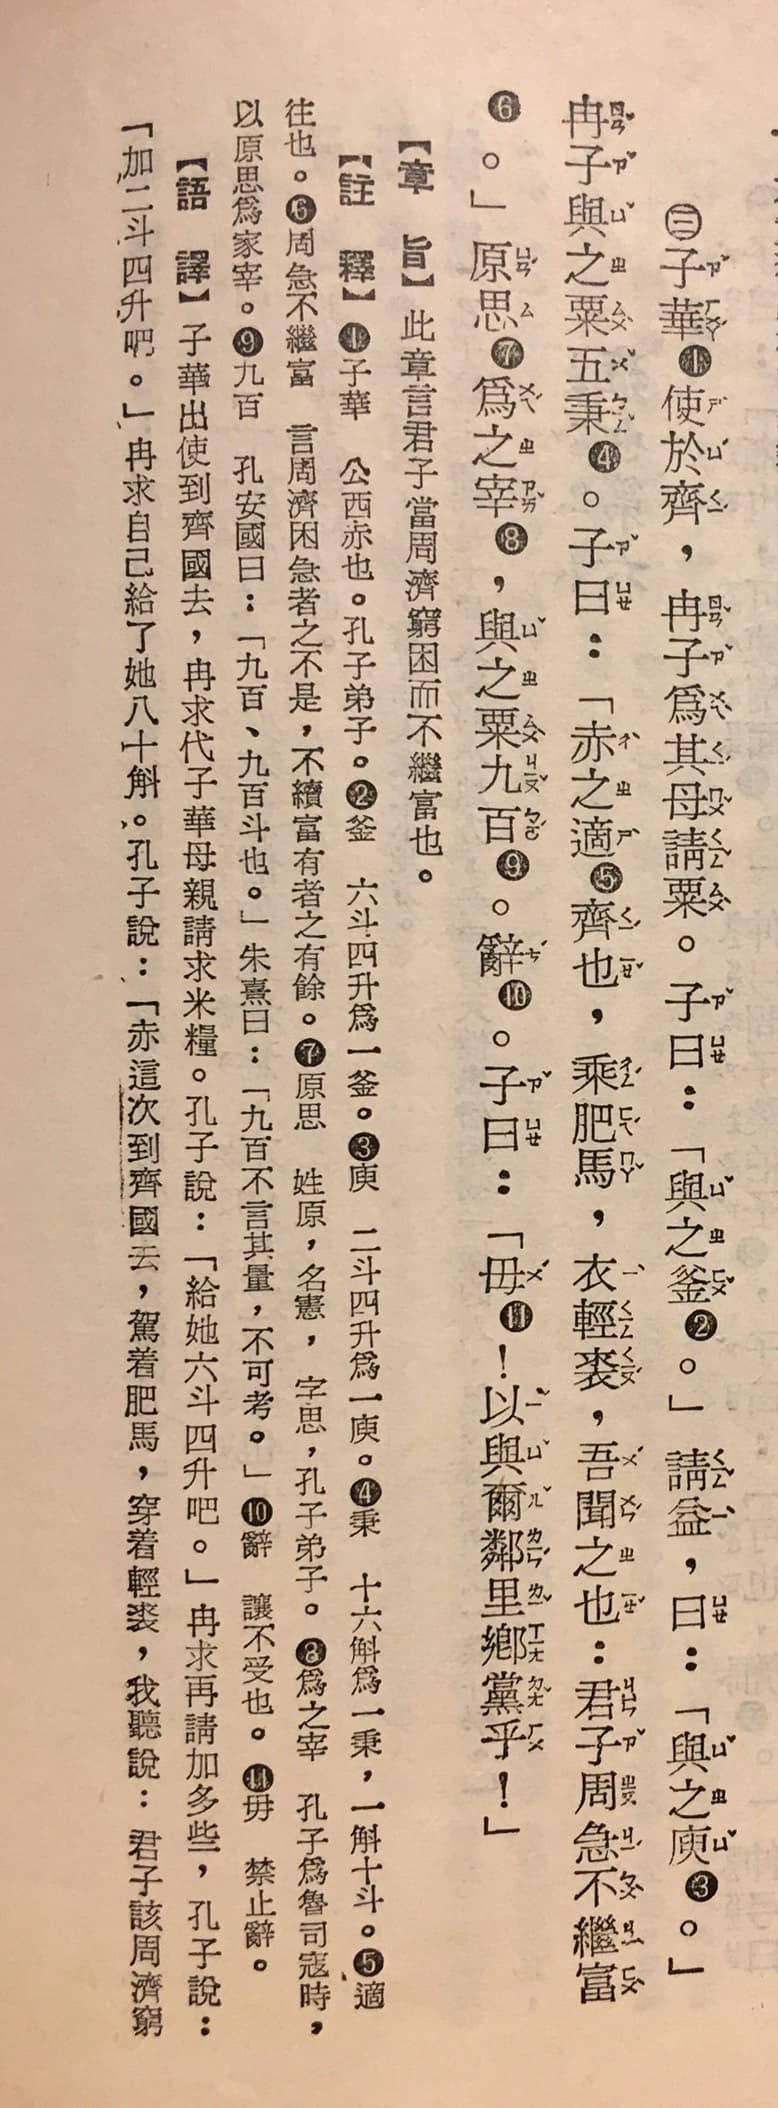 ㊂子華❶使於齊，冉子爲其母請粟。子曰：「與之釜❷。」請益，曰：「與之庾❸。」
冉子與之粟五秉❹。子曰：「赤之適❺齊也，乘肥馬，衣輕裘，吾聞之也：君子周急不繼富
❻。」原思❼爲之宰❽，與之粟九百❾。辭❿。子曰：「毋⓫！以與爾鄰里鄉黨乎！」
【章　旨】此章言君子當周濟窮困而不繼富也。
【註　釋】❶子華　公西赤也。孔子弟子。❷釜　六斗四升爲一釜。❸庾　二斗四升爲一庾。❹秉　十六斛爲一秉，一斛十斗。❺適
往也。❻周急不繼富　言周濟困急者之不足，不續富有者之有餘。❼原思　姓原，名憲，字思，孔子弟子。❽爲之宰　孔子爲魯司寇時，
以原思爲家宰。❾九百　孔安國曰：「九百、九百斗也。」朱熹曰：「九百不言其量，不可考。」❿辭　讓不受也。⓫毋　禁止辭。
【語　譯】子華出使到齊國去，冉求代子華母親請求米糧。孔子說：「給她六斗四升吧。」冉求再請加多些，孔子說：
「加二斗四升吧。」冉求自己給了她八十斛。孔子說：「赤這次到齊國去，駕着肥馬，穿着輕裘，我聽說：君子該周濟窮